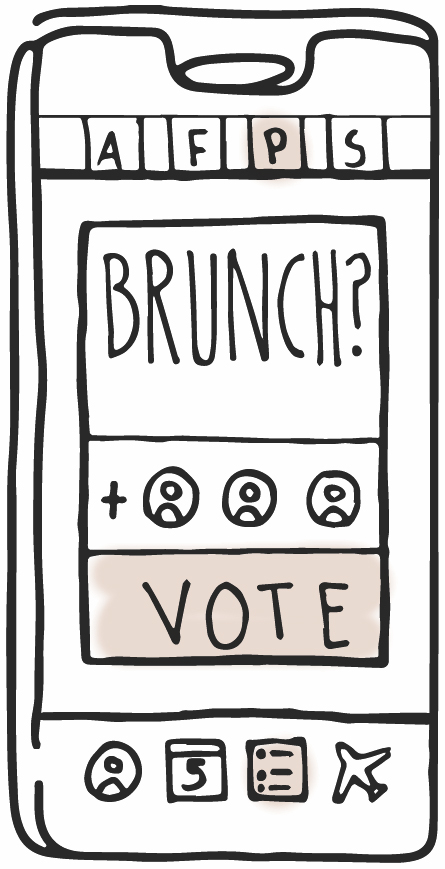 A F P S
BRUNCH?
+
VOTE
5